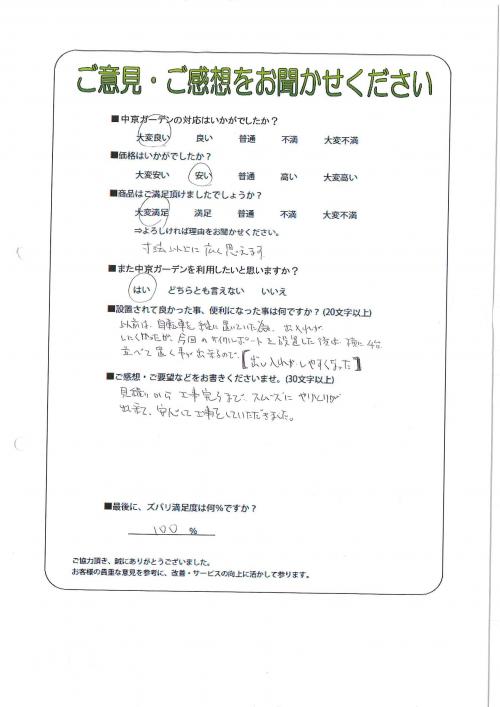 ご意見・ご感想をお聞かせください
■中京ガーデンの対応はいかがでしたか？
大変良い 良い 普通 不満 大変不満
■価格はいかがでしたか？
大変安い 安い 普通 高い 大変高い
■商品はご満足頂けましたでしょうか？
大変満足 満足 普通 不満 大変不満
⇒よろしければ理由をお聞かせください。
寸法以上に広く思える为
■また中京ガーデンを利用したいと思いますか？
はい どちらとも言えない いいえ
■設置されて良かった事、便利になった事は何ですか？(20文字以上)
以前は、自転車を縦に置いていた為、出入れが
しにくかったが、今回のサイクルポートを設置した後は、横に4台
並べて置く事が出来るので、【出し入れがしやすくなった】
■ご感想・ご要望などをお書きくださいませ。(30文字以上)
見積りから工事完了まで、スムーズにやりとりが
出来て、安心して工事をしていただきました。
■最後に、ズバリ満足度は何%ですか？
100 %
ご協力頂き、誠にありがとうございました。
お客様の貴重な意見を参考に、改善・サービスの向上に活かして参ります。